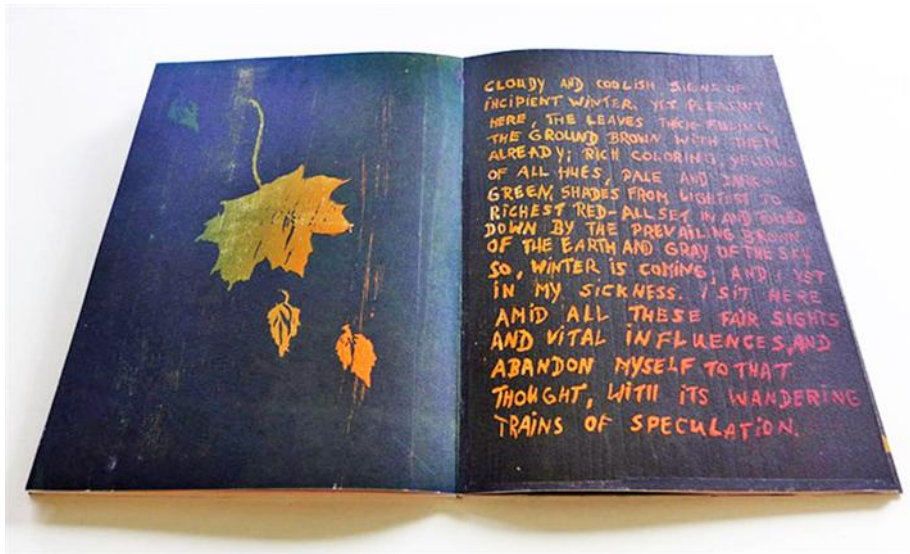 CLOUDY AND COOLISH SIGNS OF
INCIPIENT WINTER. YET PLEASANT
HERE, THE LEAVES THICK-FALLING,
THE GROUND BROWN WITH THEM
ALREADY; RICH COLORING, YELLOWS
OF ALL HUES, PALE AND DARK-
GREEN, SHADES FROM LIGHTEST TO
RICHEST RED-ALL SET IN AND TONED
DOWN BY THE PREVAILING BROWN
OF THE EARTH AND GRAY OF THE SKY
SO, WINTER IS COMING; AND I YET
IN MY SICKNESS. I SIT HERE
AMID ALL THESE FAIR SIGHTS
AND VITAL INFLUENCES, AND
ABANDON MYSELF TO THAT
THOUGHT, WITH ITS WANDERING
TRAINS OF SPECULATION.